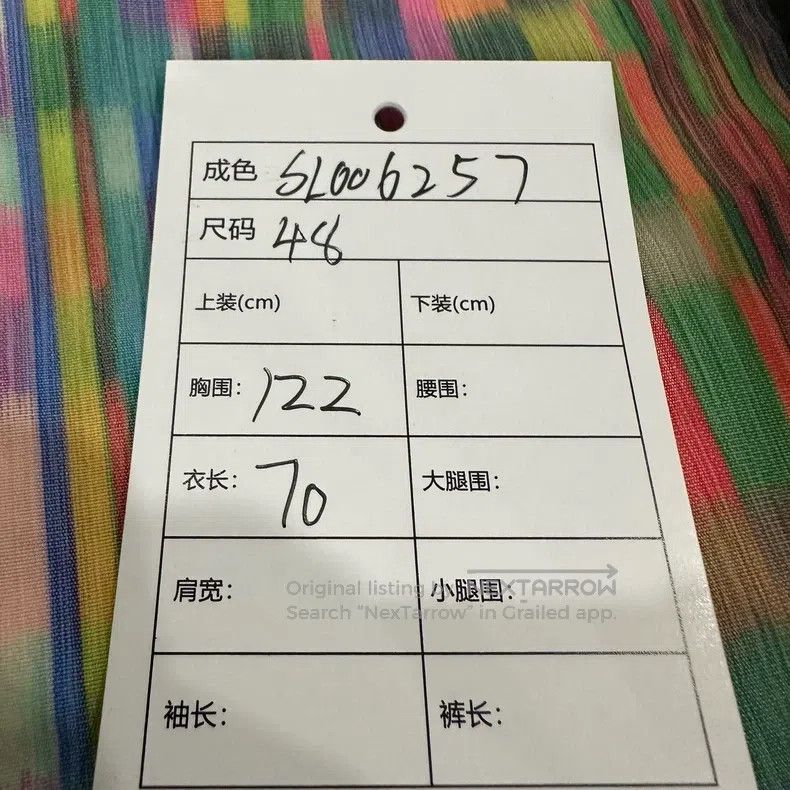 成色 SL006257
尺码 48
上装(cm) 下装(cm)
胸围: 122 腰围:
衣长: 70 大腿围:
肩宽: 小腿围:
Original listing by NEXTARROW
Search "NexTarrow" in Grailed app.
袖长: 裤长: